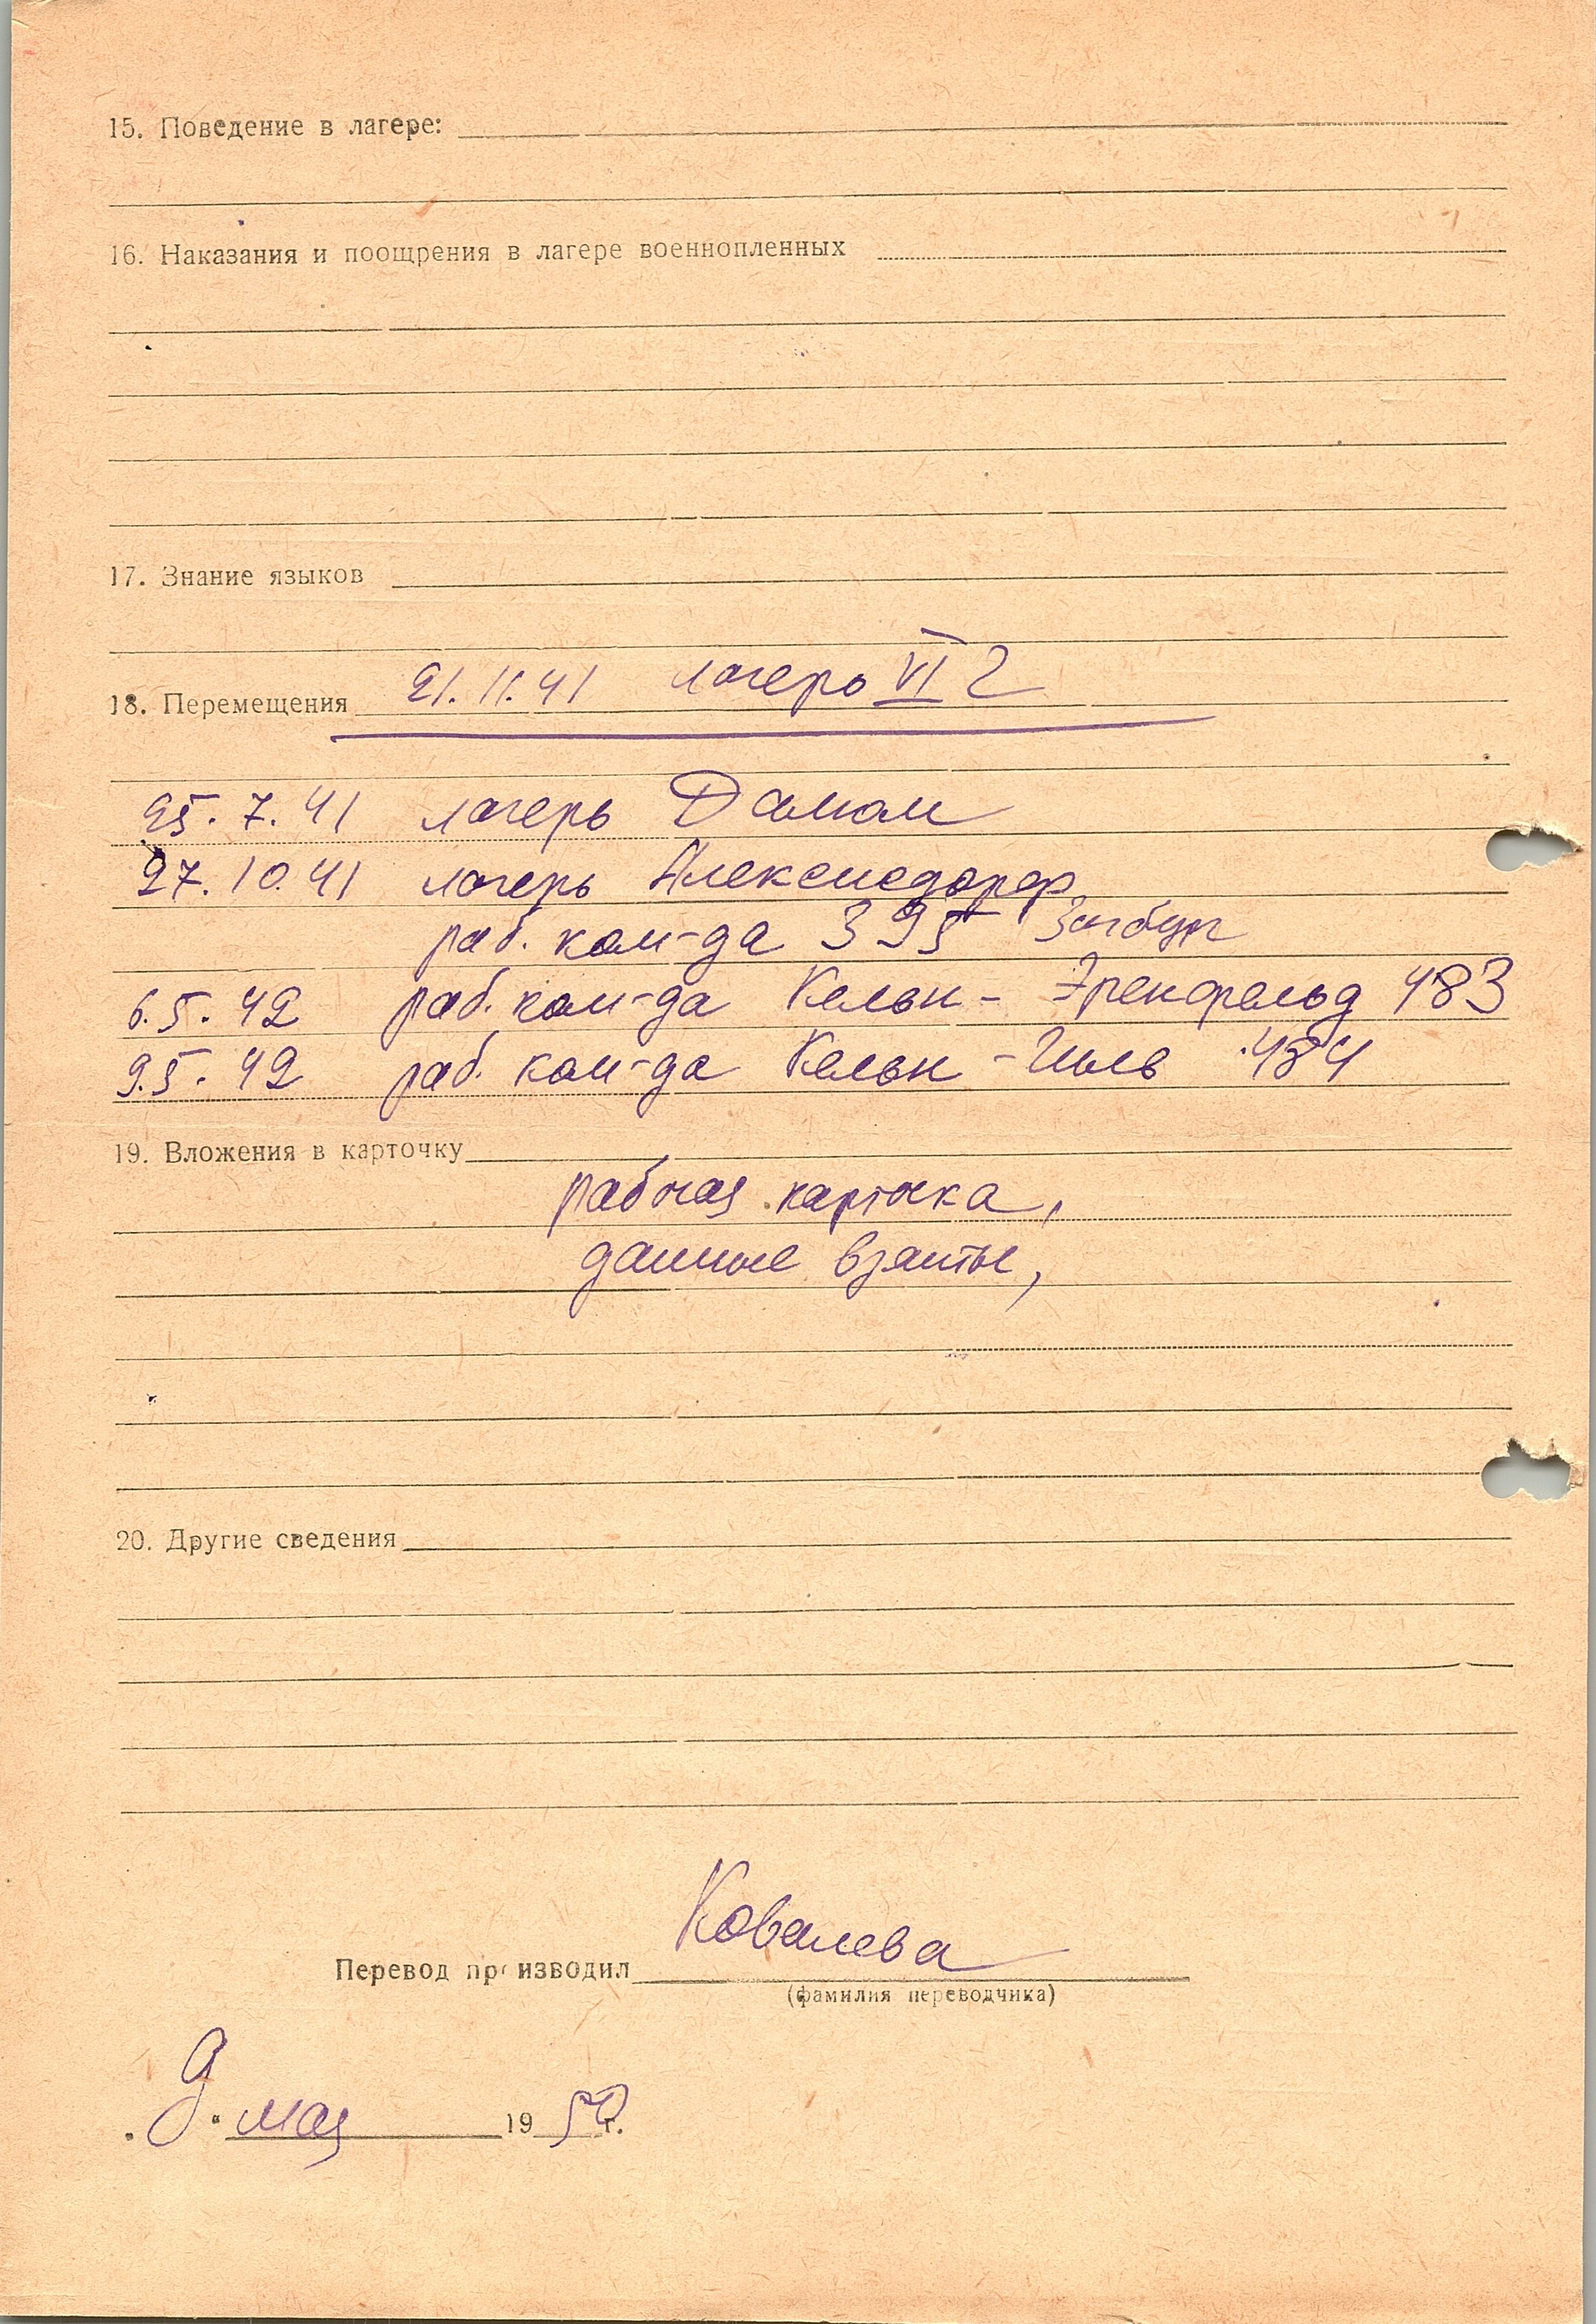 15. Поведение в лагере:
16. Наказания и поощрения в лагере военнопленных
17. Знание языков
18. Перемещения 21.11.41 лагерь VI Г
25.7.41 лагерь
27.10.41 лагерь
раб. ком-да 395
6.5.42 раб. ком-да Кельн - Эренфельд 483
9.5.42 раб. ком-да Кельн - 484
19. Вложения в карточку
рабочая карточка,
данные взяты,
20. Другие сведения
Перевод производил Ковалева
(фамилия переводчика)
"9" мая 1950 г.